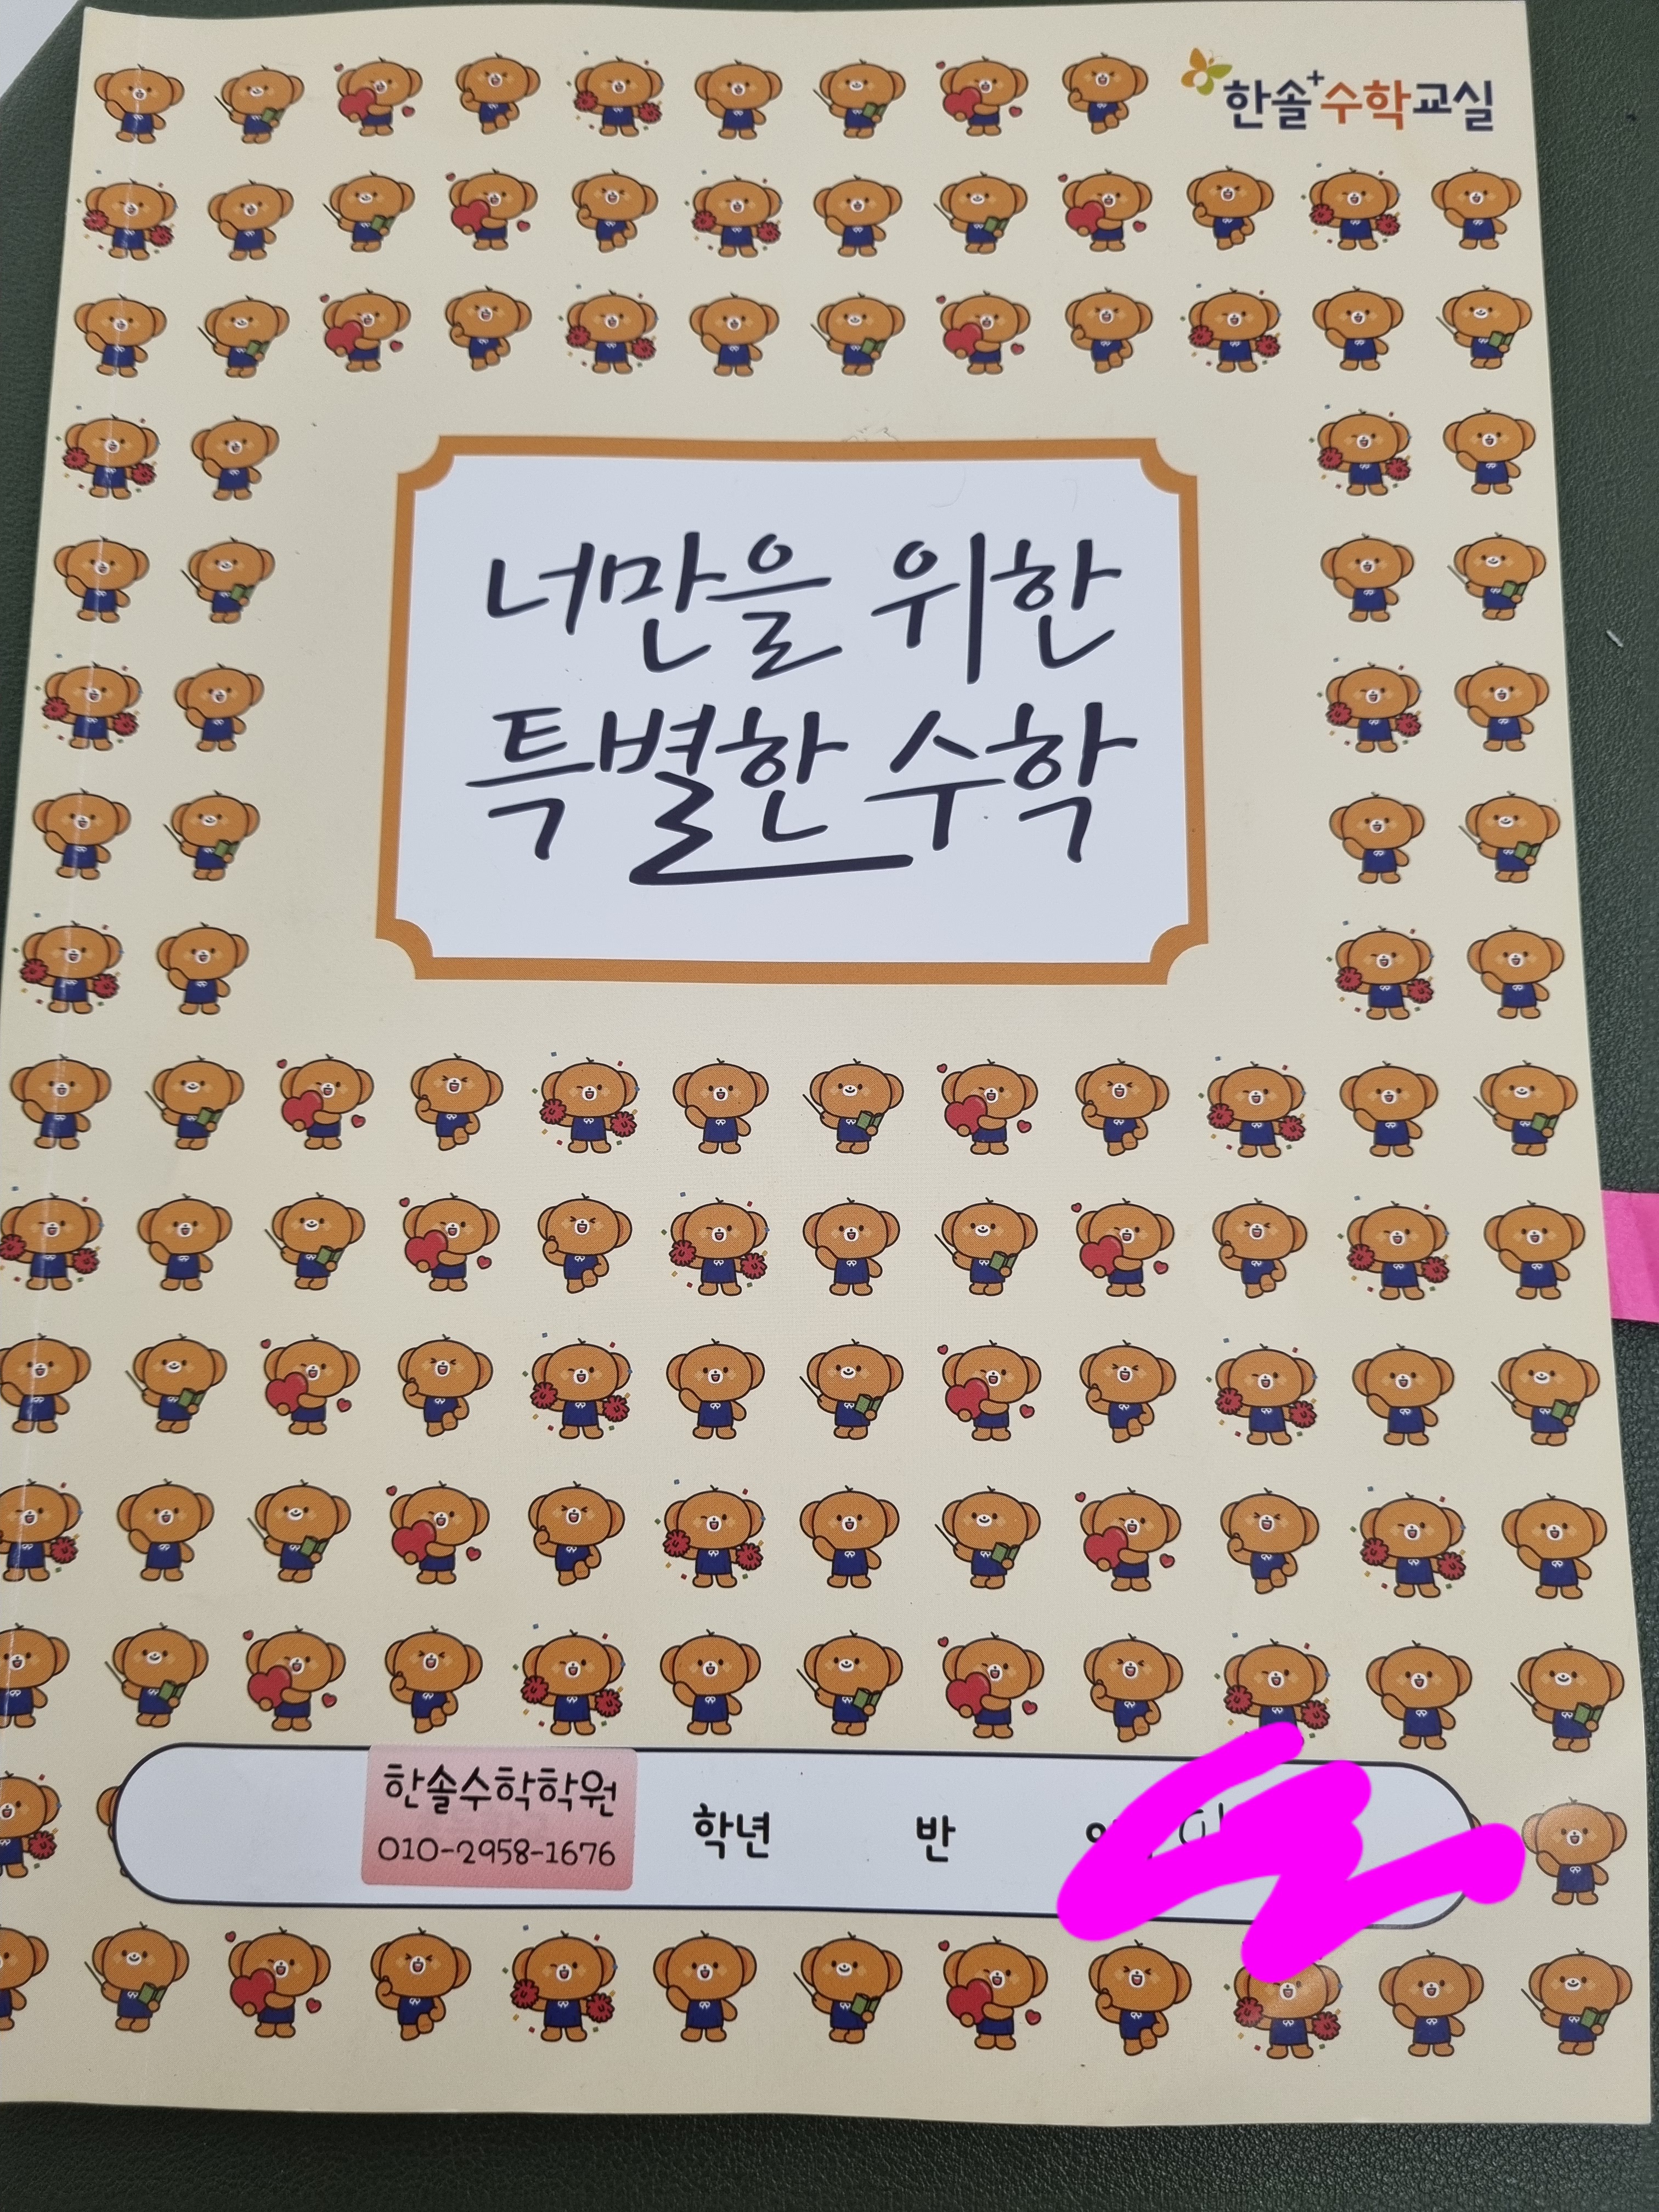 한솔+수학교실
너만을 위한
특별한 수학
한솔수학학원
010-2958-1676
학년 반